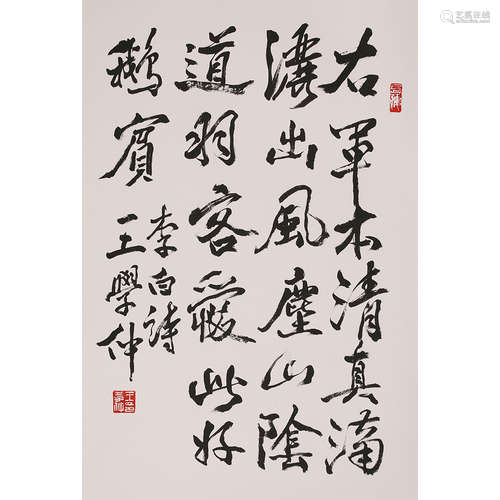 艺狐在线
右軍本清真瀟
灑出風塵山陰
道羽客愛此好
鵝賓
李白詩
王學仲